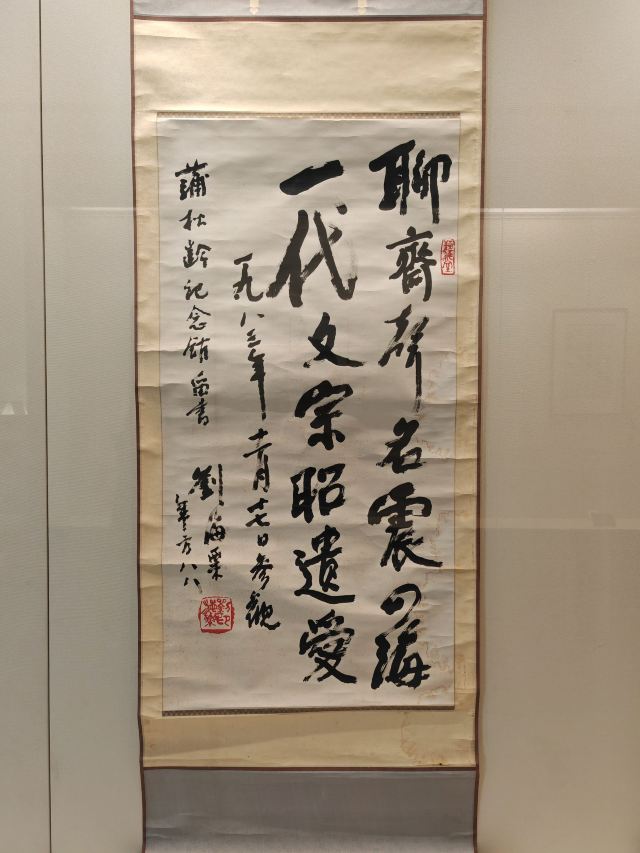 聊齋聲名震四海
一代文宗昭遺愛
一九八三年十二月十七日參觀
蒲松齡記念館留書
劉海粟
年方八八